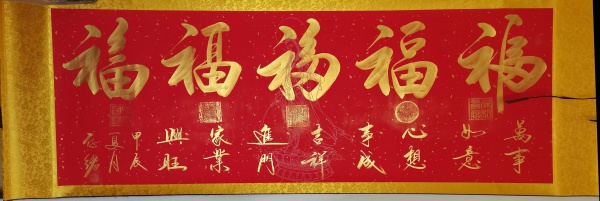 福福福福福
萬事
如意
心想
事成
吉祥
進門
家業
興旺
甲辰